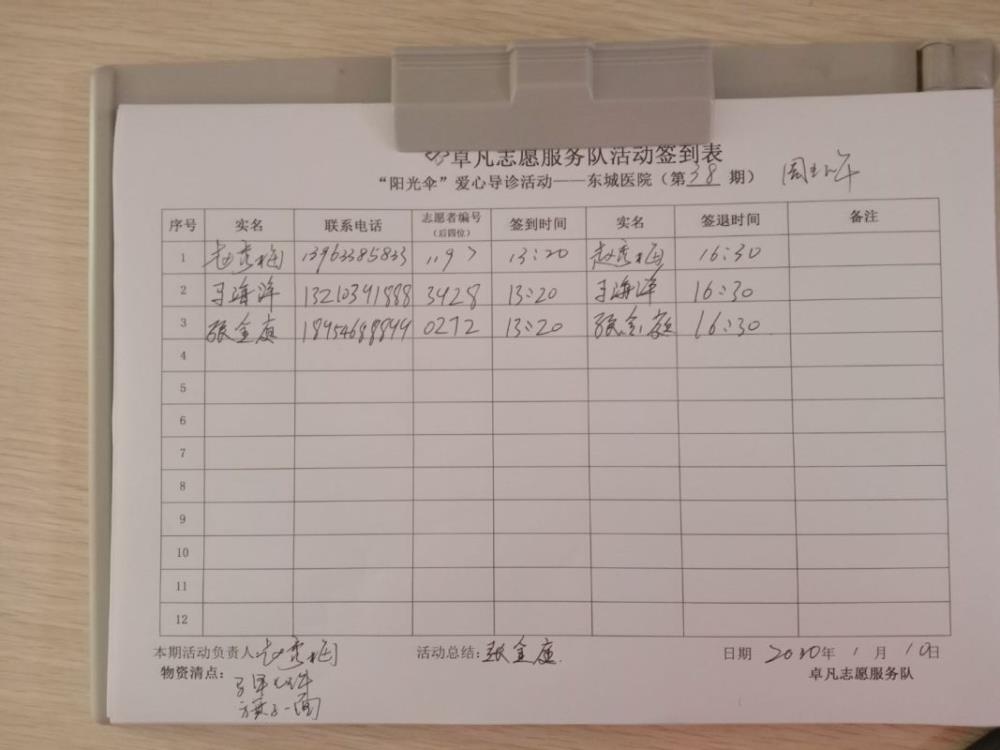 卓凡志愿服务队活动签到表
“阳光伞”爱心导诊活动——东城医院（第38期） 周五下午
序号 实名 联系电话 志愿者编号（后四位） 签到时间 实名 签退时间 备注
1 赵秀梅 13963385833 1197 13:20 赵秀梅 16:30
2 王海洋 13210391888 3428 13:20 王海洋 16:30
3 张金庭 18954688899 0272 13:20 张金庭 16:30
4
5
6
7
8
9
10
11
12
本期活动负责人 赵秀梅 活动总结：张金庭 日期 2020年1月10日
物资清点： 卓凡志愿服务队